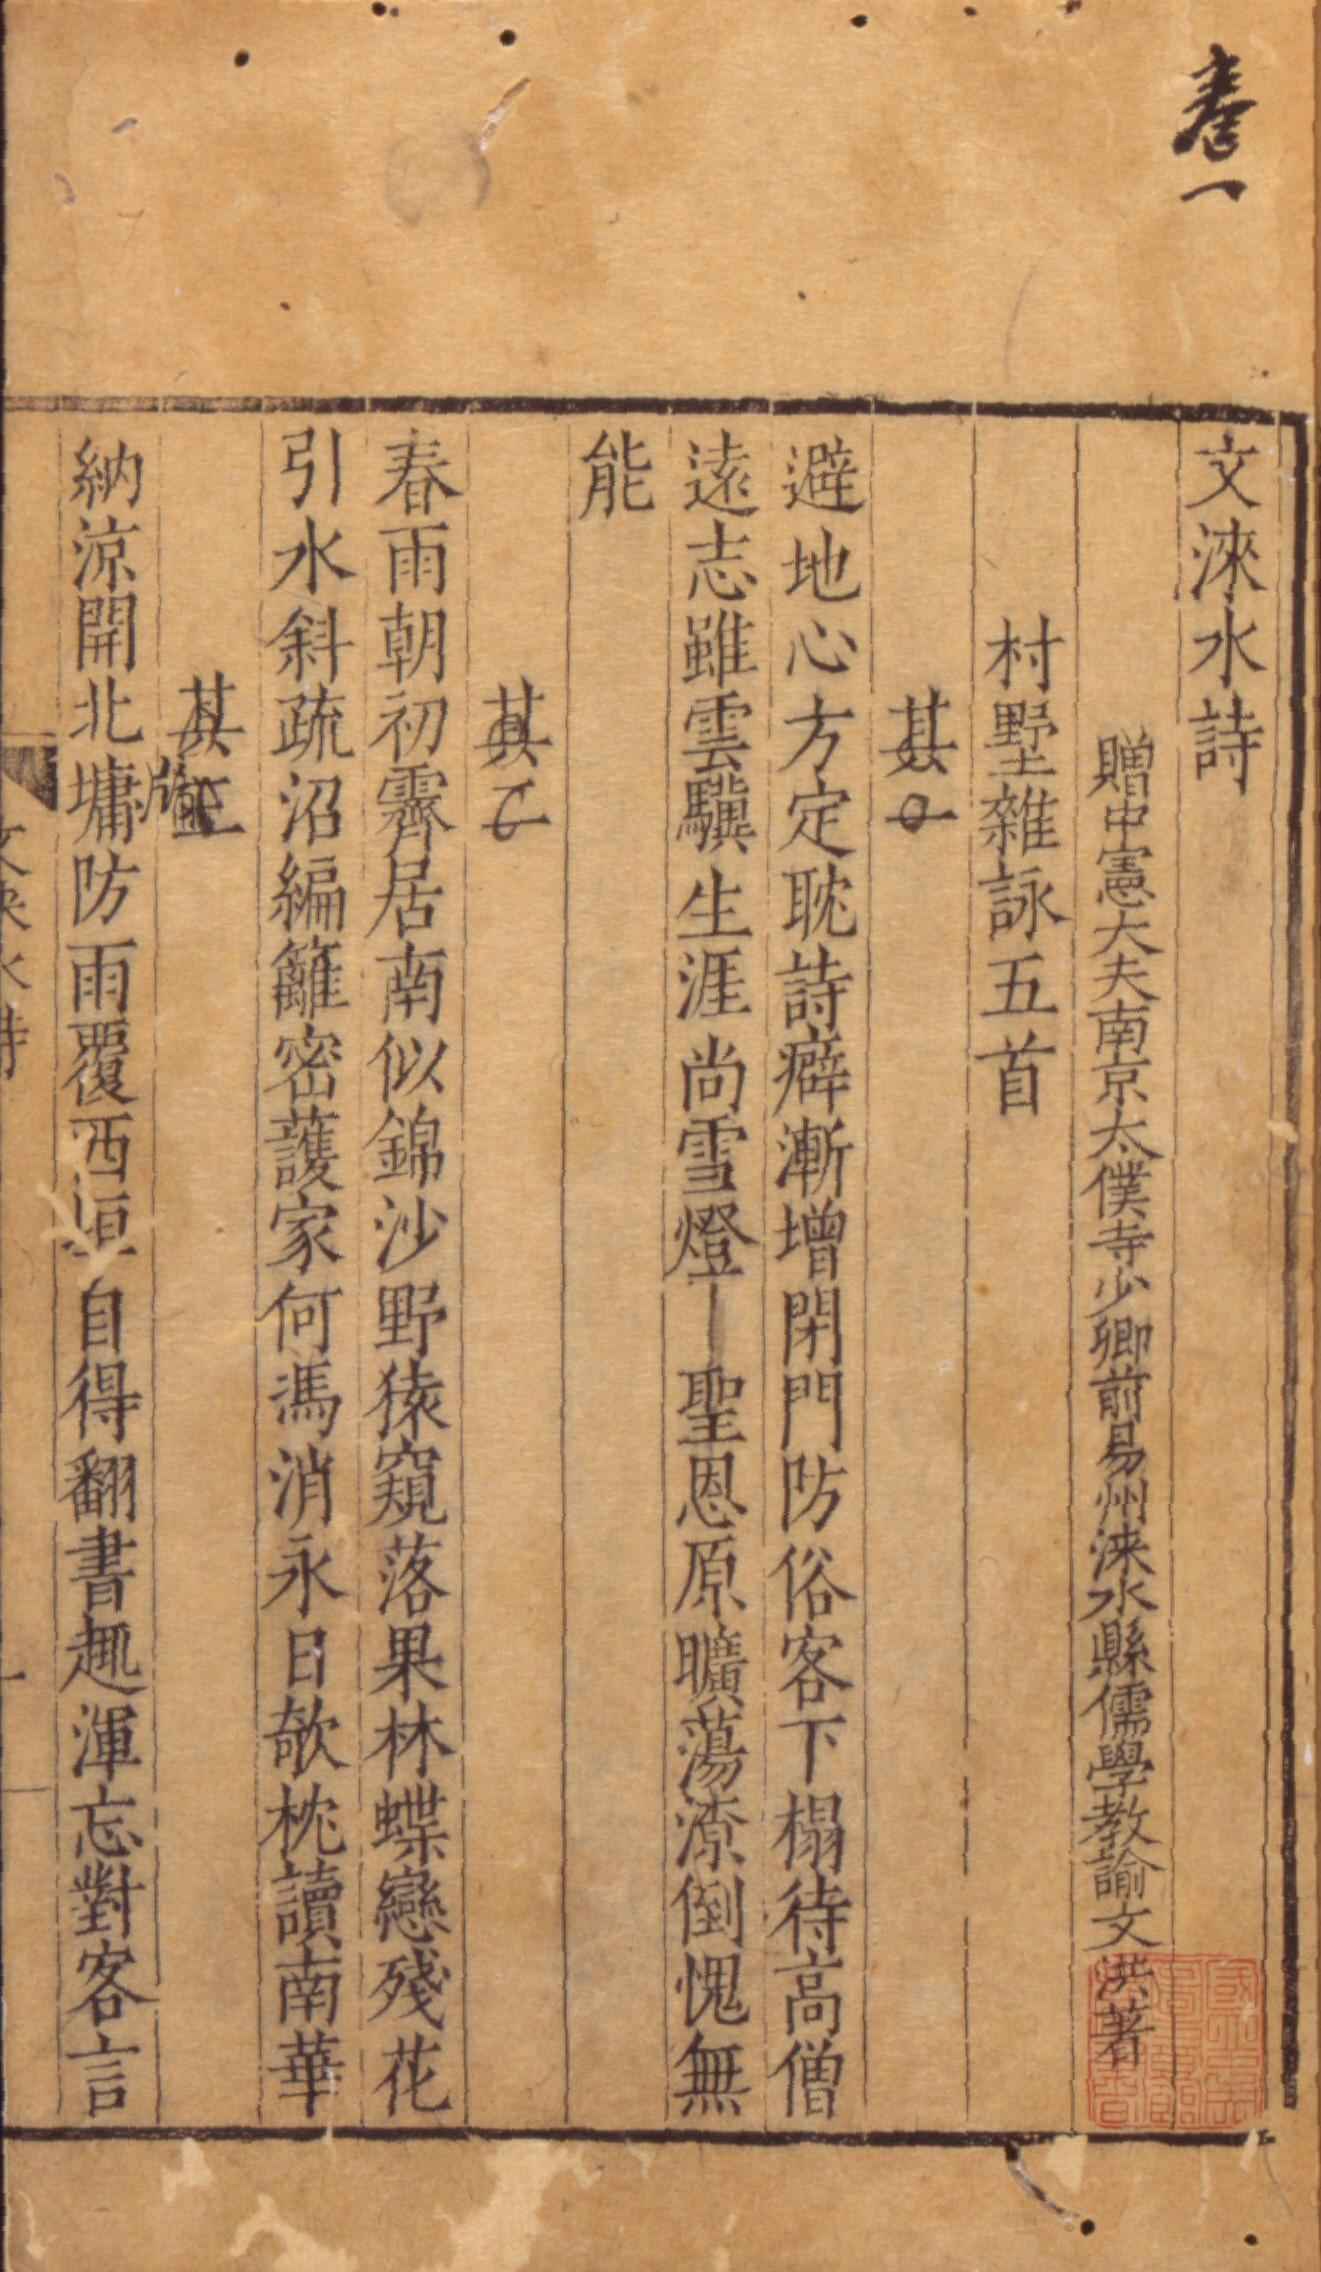 卷一
文淶水詩
贈中憲大夫南京太僕寺少卿前易州淶水縣儒學教諭文洪著
村墅雜詠五首
其一
避地心方定耽詩癖漸增閉門防俗客下榻待高僧
遠志雖雲驥生涯尚雪燈聖恩原曠蕩潦倒愧無
能
其二
春雨朝初霽居南似錦沙野猿窺落果林蝶戀殘花
引水斜疏沼編籬密護家何馮消永日欹枕讀南華
其三
納涼開北墉防雨覆西垣自得翻書趣渾忘對客言
文淶水詩
一